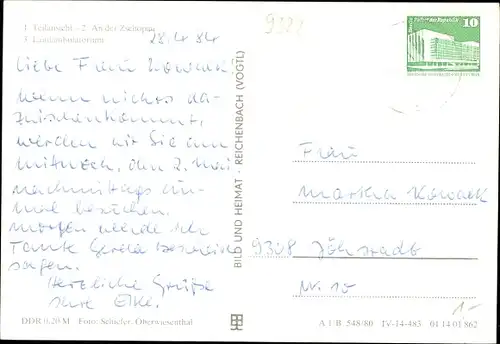 1 Teilansicht - 2 An der Zschopau
3 Landambulatorium
9322
28.4.84
Liebe Frau Kowack
wenn nichts da-
zwischenkommt,
werden wir Sie am
Mittwoch, den 2. Mai
nachmittags ein-
mal besuchen.
Morgen werde ich
Tante Gerda Bescheid
sagen.
Herzliche Grüße
Ihre Elke.
DDR 0,20 M Foto: Schiefer, Oberwiesenthal
BILD UND HEIMAT · REICHENBACH (VOGTL)
10
Palast der Republik
Frau
Martha Kowack
9308 Jöhstadt
Nr. 10
1.-
A 1/B 548/80 IV-14-483 01 14 01 862